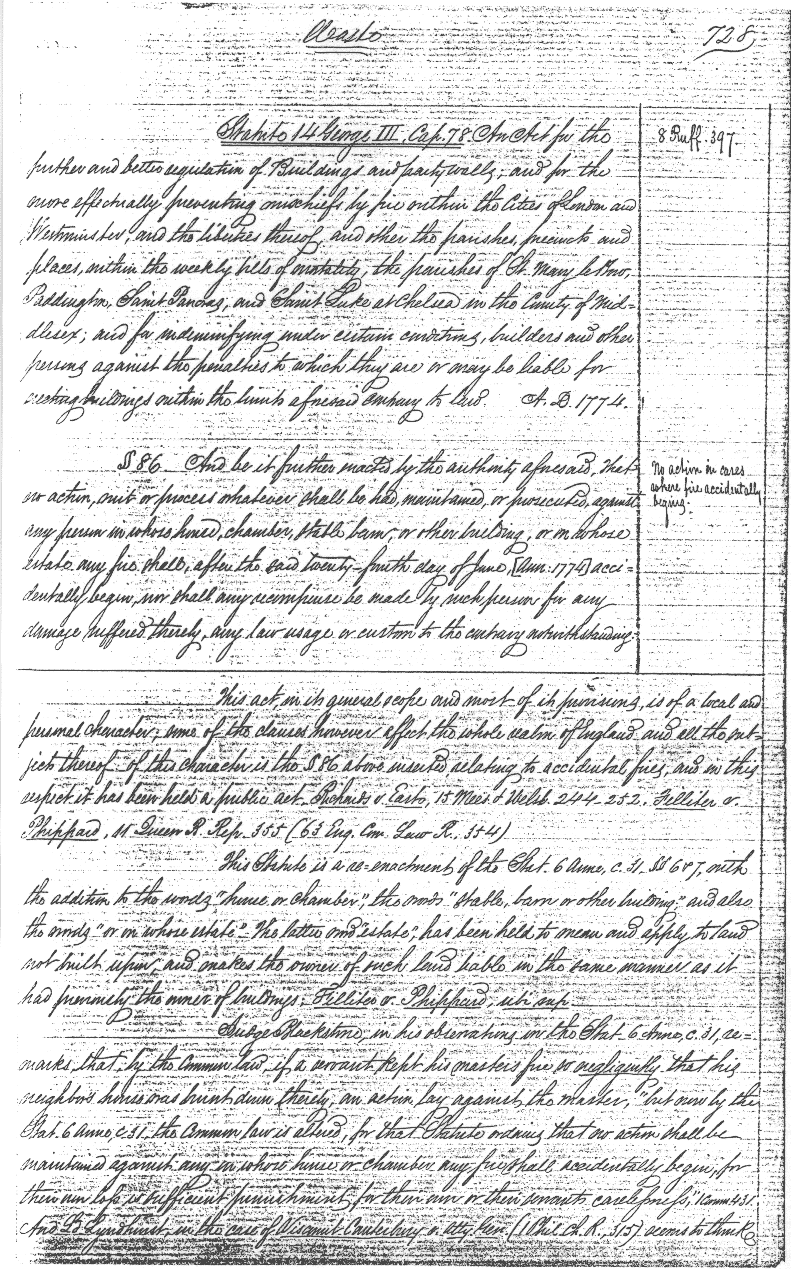 Waste
728
Statute 14 George III. Cap. 78 An Act for the
8 Ruff. 397.
further and better regulation of Buildings and party walls; and for the
more effectually preventing mischiefs by fire within the Cities of London and
Westminster, and the liberties thereof, and other the parishes, precincts and
places, within the weekly bills of mortality, the parishes of St. Mary le Bow,
Paddington, Saint Pancras, and Saint Luke at Chelsea in the County of Mid=
dlesex; and for indemnifying under certain conditions, builders and other
persons against the penalties to which they are or may be liable for
erecting buildings within the limits aforesaid contrary to law. A. D. 1774.
§ 86 And be it further enacted by the authority aforesaid, That
No action in cases
where fire accidentally
begins.
no action, suit or process whatever shall be had, maintained, or prosecuted, against
any person in whose house, chamber, stable barn, or other building, or on whose
estate any fire shall, after the said twenty-fourth day of June, [Ann: 1774] acci=
dentally begin, nor shall any recompense be made by such person for any
damage suffered thereby, any law usage or custom to the contrary notwithstanding:
This act, in its general scope and most of its provisions, is of a local and
personal character; some of the clauses however affect the whole realm of England and all the sub=
jects thereof - of this character is the § 86 above inserted relating to accidental fires, and in this
respect it has been held a public act. Richards v. Easto, 15 Mees. & Welsb. 244-252. Filliter v.
Phippard, 11 Queen B. Rep. 355 (63 Eng. Com. Law R., 354)
This Statute is a re-enactment of the Stat. 6 Anne, c. 31. §§ 6 & 7, with
the addition to the words "house or chamber," the words "stable, barn or other building," and also
the words "or on whose estate." The latter word "estate", has been held to mean and apply to land
not built upon, and makes the owner of such land liable in the same manner as it
had previously the owner of buildings; Filliter v. Phippard, ubi sup.
Judge Blackstone, in his observations on the Stat. 6 Anne, c. 31, re=
marks, that, by the Common law, if a servant kept his masters fire so negligently that his
neighbor's house was burnt down thereby, an action lay against the master, "but now by the
Stat. 6 Anne, c. 31, the Common law is altered, for that Statute ordains that no action shall be
maintained against any in whose house or chamber any fire shall accidentally begin; for
their own loss is sufficient punishment for their own or their servants carelessness," 1 Comm 431.
And Ld Lyndhurst, in the case of Viscount Canterbury v. Atty Gen. (1 Phil. Ch. R., 315) seems to think